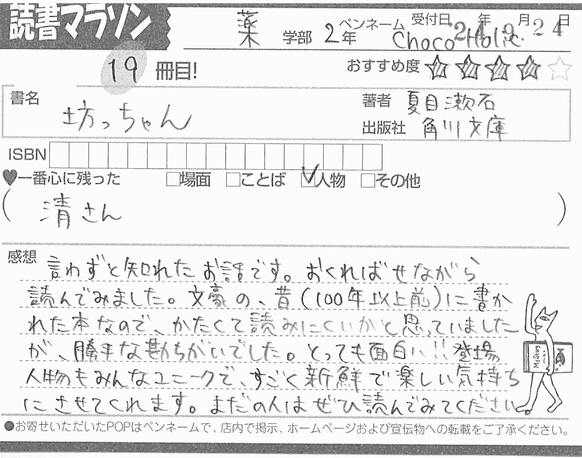 読書マラソン
薬 学部 2年 ペンネーム Choco Holic 受付日 24年 9月 24日
19 冊目!
おすすめ度 ★★★★☆
書名 坊っちゃん
著者 夏目漱石
出版社 角川文庫
ISBN
♥一番心に残った □場面 □ことば ☑人物 □その他
( 清さん )
感想 言わずと知れたお話です。おくればせながら
読んでみました。文豪の、昔(100年以上前)に書か
れた本なので、かたくて読みにくいかと思っていました
が、勝手な勘ちがいでした。とっても面白い!!登場
人物もみんなユニークで、すごく新鮮で楽しい気持ち
にさせてくれます。まだの人はぜひ読んでみてください
●お寄せいただいたPOPはペンネームで、店内で掲示、ホームページおよび宣伝物への転載をご了承ください。